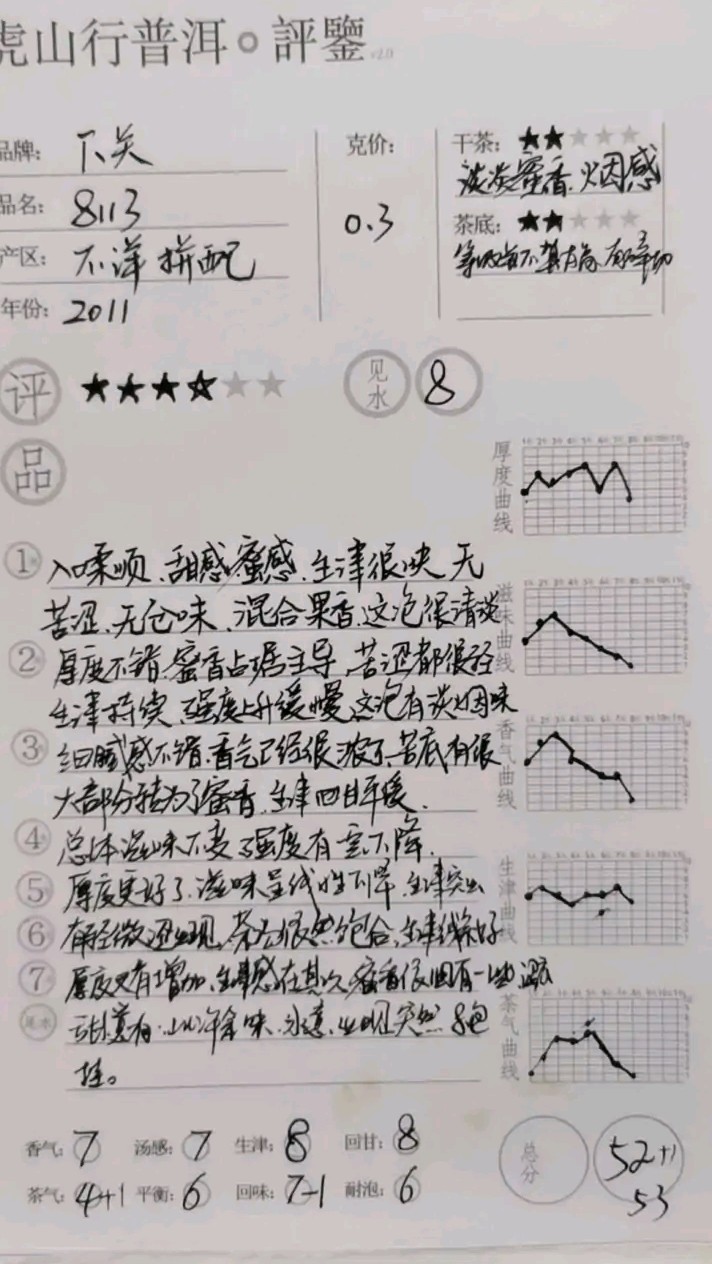 虎山行普洱。評鑒 v2.0
品牌: 下关
品名: 8113
产区: 不详 拼配
年份: 2011
克价:
0.3
干茶: ★★★★★
淡淡蜜香.烟感
茶底: ★★★★★
评 ★★★★★★
见水 8
品
厚度曲线
滋味曲线
香气曲线
生津曲线
茶气曲线
① 入口柔顺、甜感蜜感、生津很快 无
苦涩、无仓味、混合果香、这泡很清淡
② 厚度不错、蜜香占据主导、苦涩都很轻
生津持续 强度上升缓慢 这泡有淡烟味
③ 细腻感不错、香气已经很浓了、苦底有很
大部分转为了蜜香、生津回甘平缓、
④ 总体滋味不变 强度有一些下降.
⑤ 厚度更好了、滋味呈线性下降、生津突出
⑥ 有轻微涩出现、茶气依然饱合、生津线条好
⑦ 厚度又有增加、生津感在其次、蜜香依旧有一些
尾水 甜意有 水意 出现 突然 8泡
挂。
香气: 7 汤感: 7 生津: 8 回甘: 8
茶气: 4+1 平衡: 6 回味: 7-1 耐泡: 6
总分 52+1
53